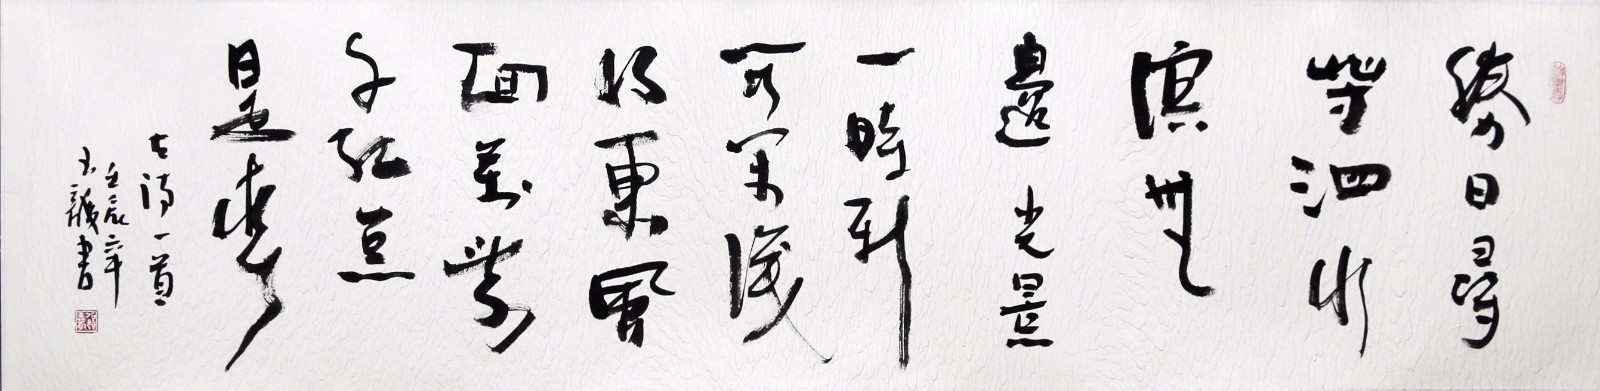 勝日尋
芳泗水
濱無
邊光景
一時新
等閒識
得東風
面萬紫
千紅總
是春
古詩一首
壬辰年
書